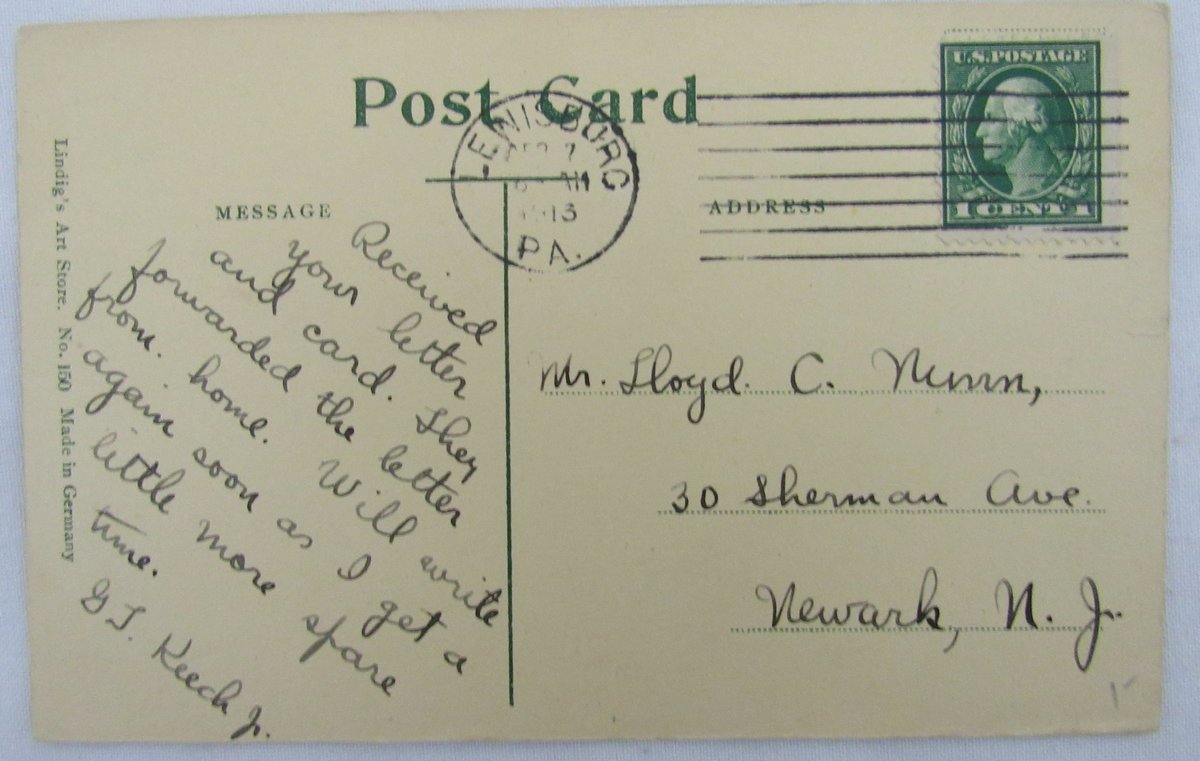 Post Card
U.S. POSTAGE
1 CENT 1
LEWISBURG
1913
PA.
MESSAGE
ADDRESS
Received
your letter
and card. They
forwarded the letter
from. home. Will write
again soon as I get a
little more spare
time.
G T. Keech Jr.
Mr. Lloyd. C.
30 Sherman Ave.
Newark, N. J.
Lindig's Art Store. No. 150 Made in Germany